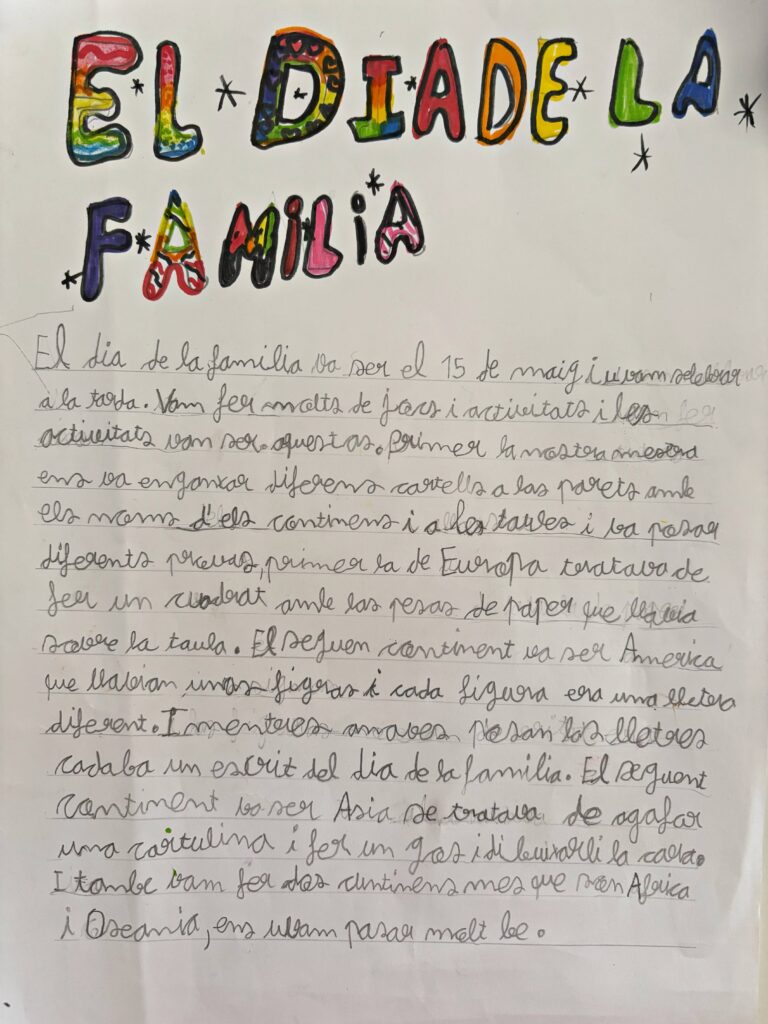 EL DIA DE LA
FAMILIA
El dia de la familia va ser el 15 de maig i u vam selebrar
a la tarda. Vam fer molts de jocs i activitats i les
activitats van ser aquestas. Primer la nostra mestra
ens va enganxar diferens cartells a las parets amb
els noms d'els continens i a les taules i va posar
diferents provas, primer la de Europa tratava de
fer un cuadrat amb las pesas de paper que
sobre la taula. El seguen continent va ser America
que llabian unas figras i cada figura era una lletra
diferent. I mentres anaves posan las lletres
cadaba un escrit del dia de la familia. El seguent
continent va ser Asia se tratava de agafar
una cartulina i fer un gos i dibuixarli la cara.
I tambe vam fer dos cuntinens mes que son Africa
i Oseania, ens u vam pasar molt be.